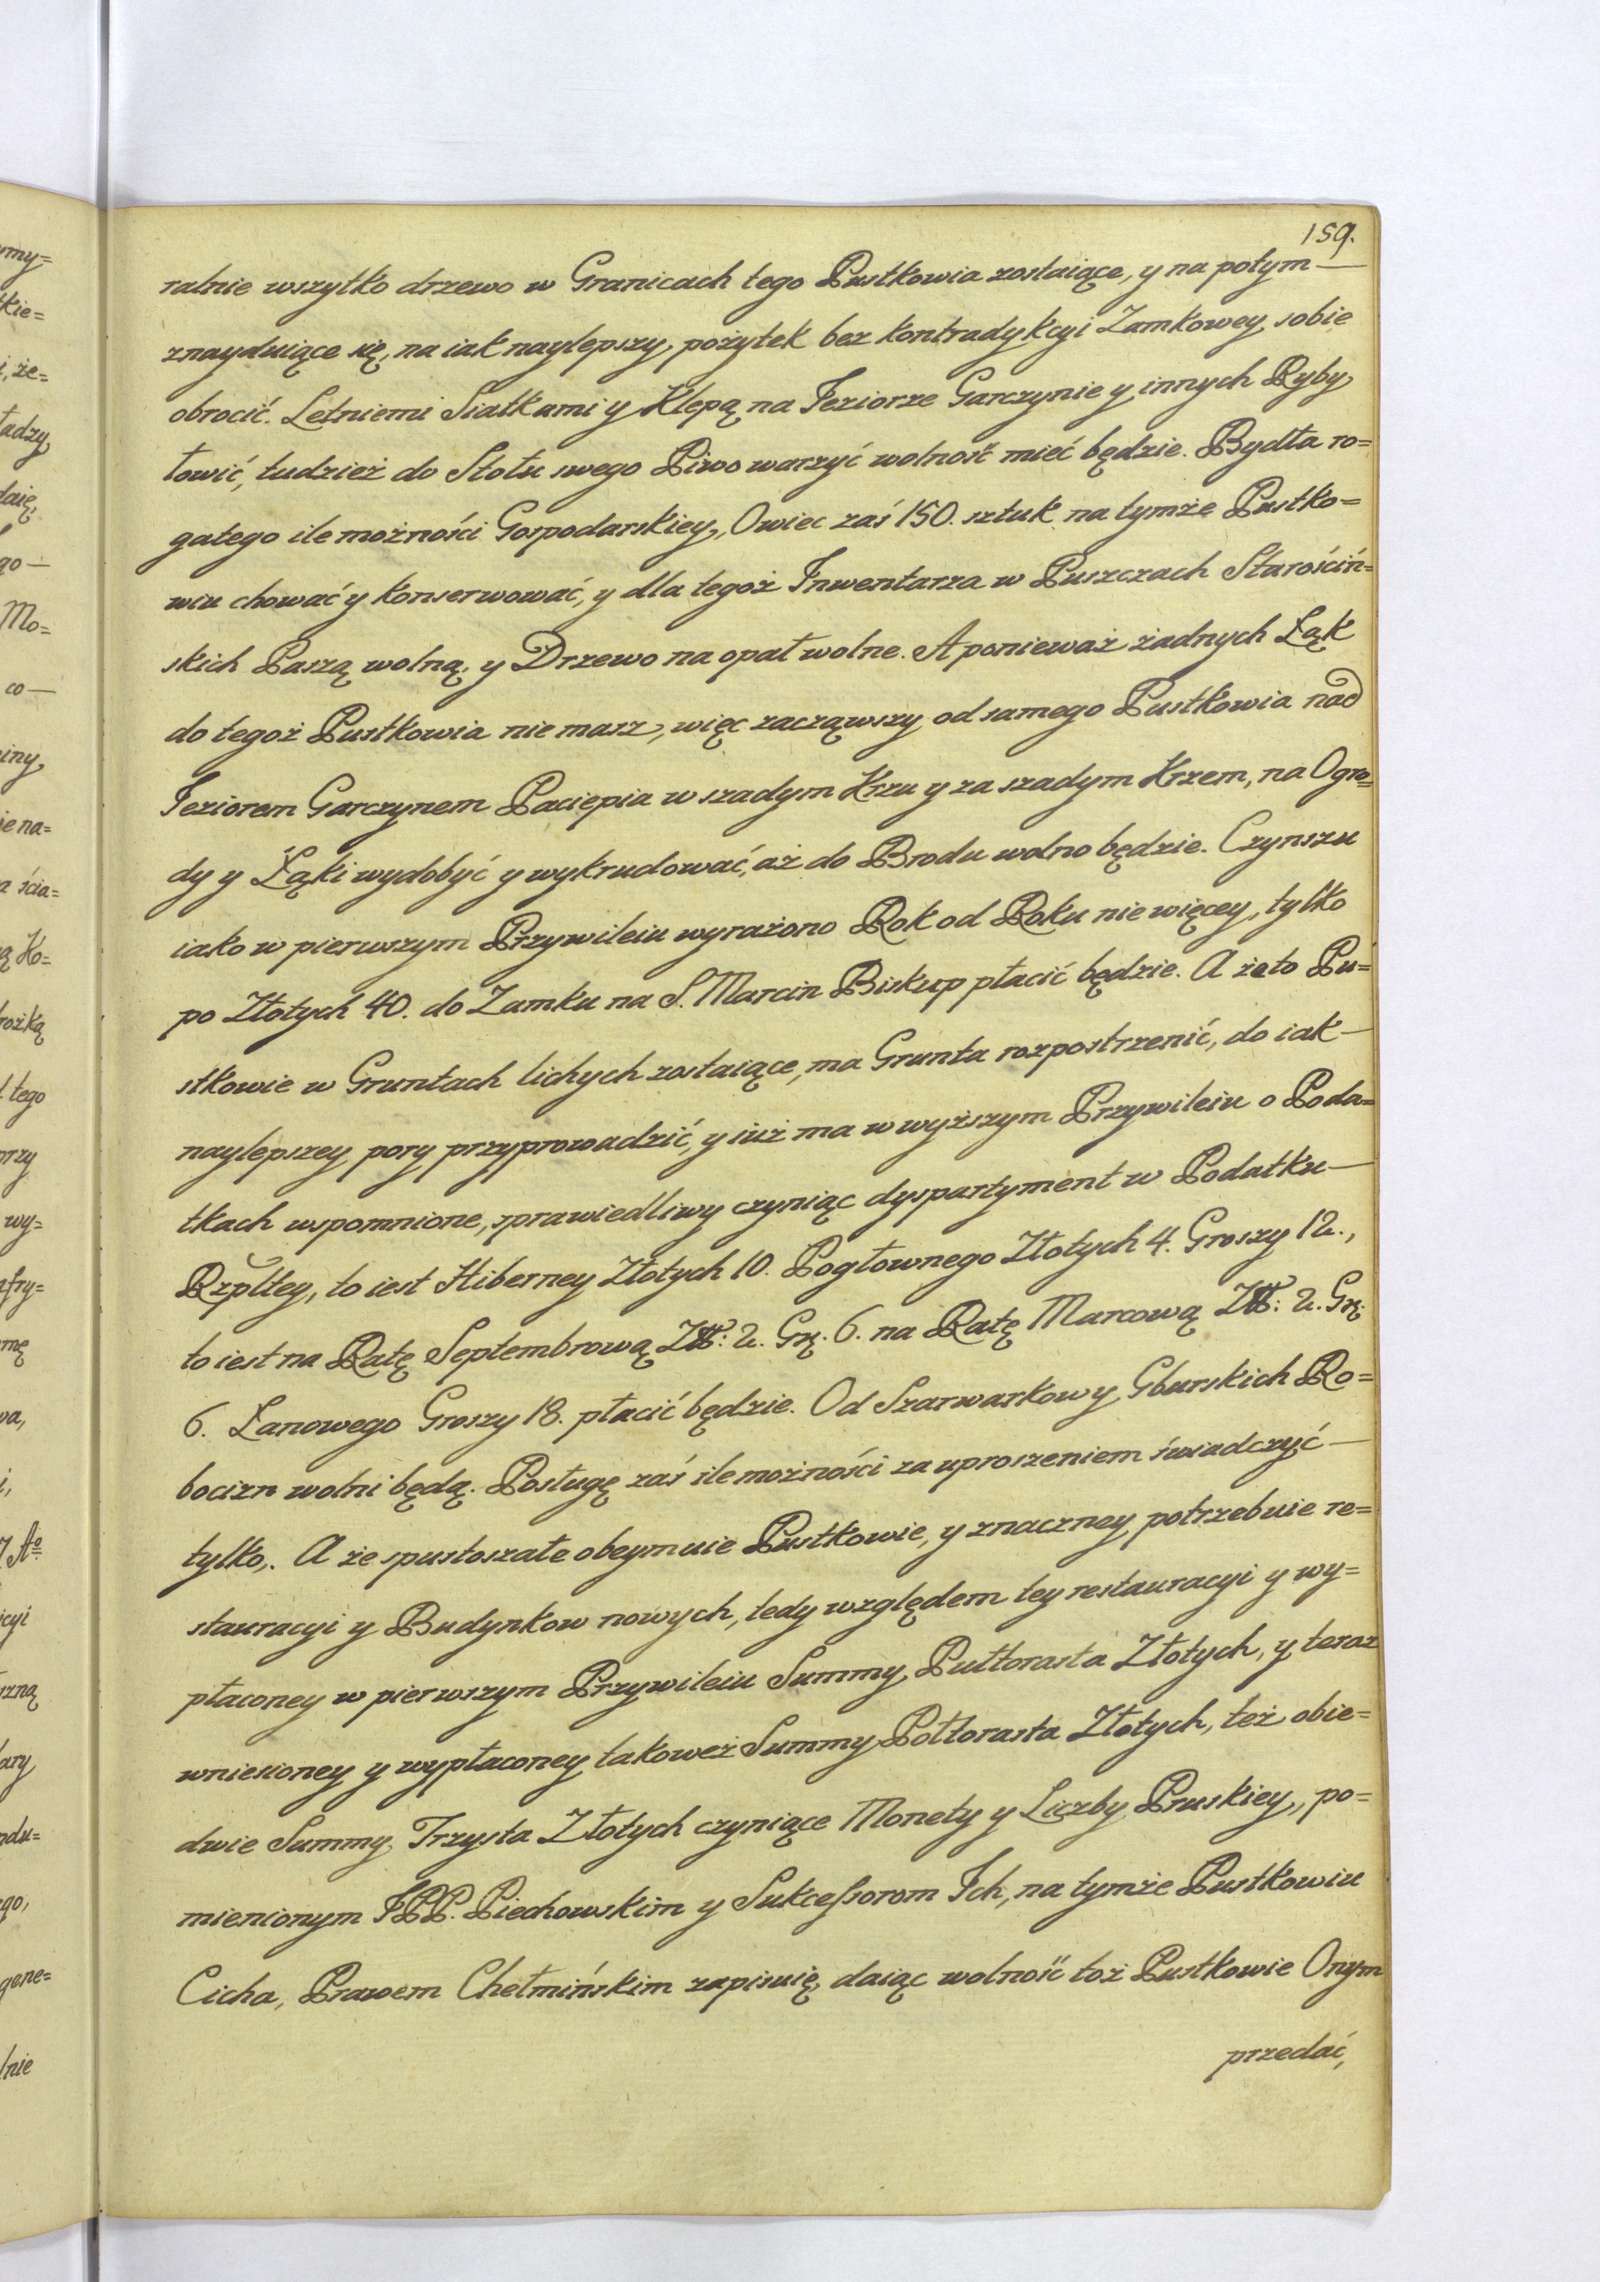 159.
ralnie wszytko drzewo w Granicach tego Pustkowia zostaiące, y na potym —
znayduiące się, na iak naylepszy pożytek bez kontradykcyi Zamkowey sobie
obrocić. Letniemi Siatkami y Klepą na Jeziorze Garczynie y innych Ryby
łowić, tudzież do Stołu swego Piwo warzyć wolność mieć będzie. Bydła ro=
gatego ile możności Gospodarskiey, Owiec zaś 150. sztuk na tymże Pustko=
wiu chować y konserwować, y dla tegoż Inwentarza w Puszczach Starościń=
skich Paszą wolną, y Drzewo na opał wolne. A ponieważ żadnych Łąk
do tegoż Pustkowia nie masz, więc zacząwszy od samego Pustkowia nad
Jeziorem Garczynem Paciepia w szadym Krzu y za szadym Krzem, na Ogro=
dy y Łąki wydobyć y wykrudować, aż do Brodu wolno będzie. Czynszu
iako w pierwszym Przywileiu wyrażono Rok od Roku nie więcey, tylko
po Złotych 40. do Zamku na S. Marcin Biskup płacić będzie. A że to Pu=
stkowie w Gruntach lichych zostaiące, ma Grunta rozpostrzenić, do iak —
naylepszey pory przyprowadzić, y iuż ma w wyższym Przywileiu o Poda=
tkach wspomnione, sprawiedliwy czyniąc dyspartyment w Podatku —
Rzpltey, to iest Hiberney Złotych 10. Pogłownego Złotych 4. Groszy 12.,
to iest na Ratę Septembrową Zł: 2. Gr. 6. na Ratę Marcową Zł: 2. Gr:
6. Łanowego Groszy 18. płacić będzie. Od Szarwarkow y Gburskich Ro=
bocizn wolni będą. Posługę zaś ile możności za uproszeniem świadczyć —
tylko,. A że spustoszałe obeymuie Pustkowie, y znaczney potrzebuie re=
stauracyi y Budynkow nowych, tedy względem tey restauracyi y wy=
płaconey w pierwszym Przywileiu Summy Pułtorasta Złotych, y teraz
wniesioney y wypłaconey takoweż Summy Połtorasta Złotych, też obie=
dwie Summy Trzysta Złotych czyniące Monety y Liczby Pruskiey, po=
mienionym JPP. Piechowskim y Sukcessorom Ich, na tymże Pustkowiu
Cicha, Prawem Chełmińskim zapisuię, daiąc wolność toż Pustkowie Onym
przedać,